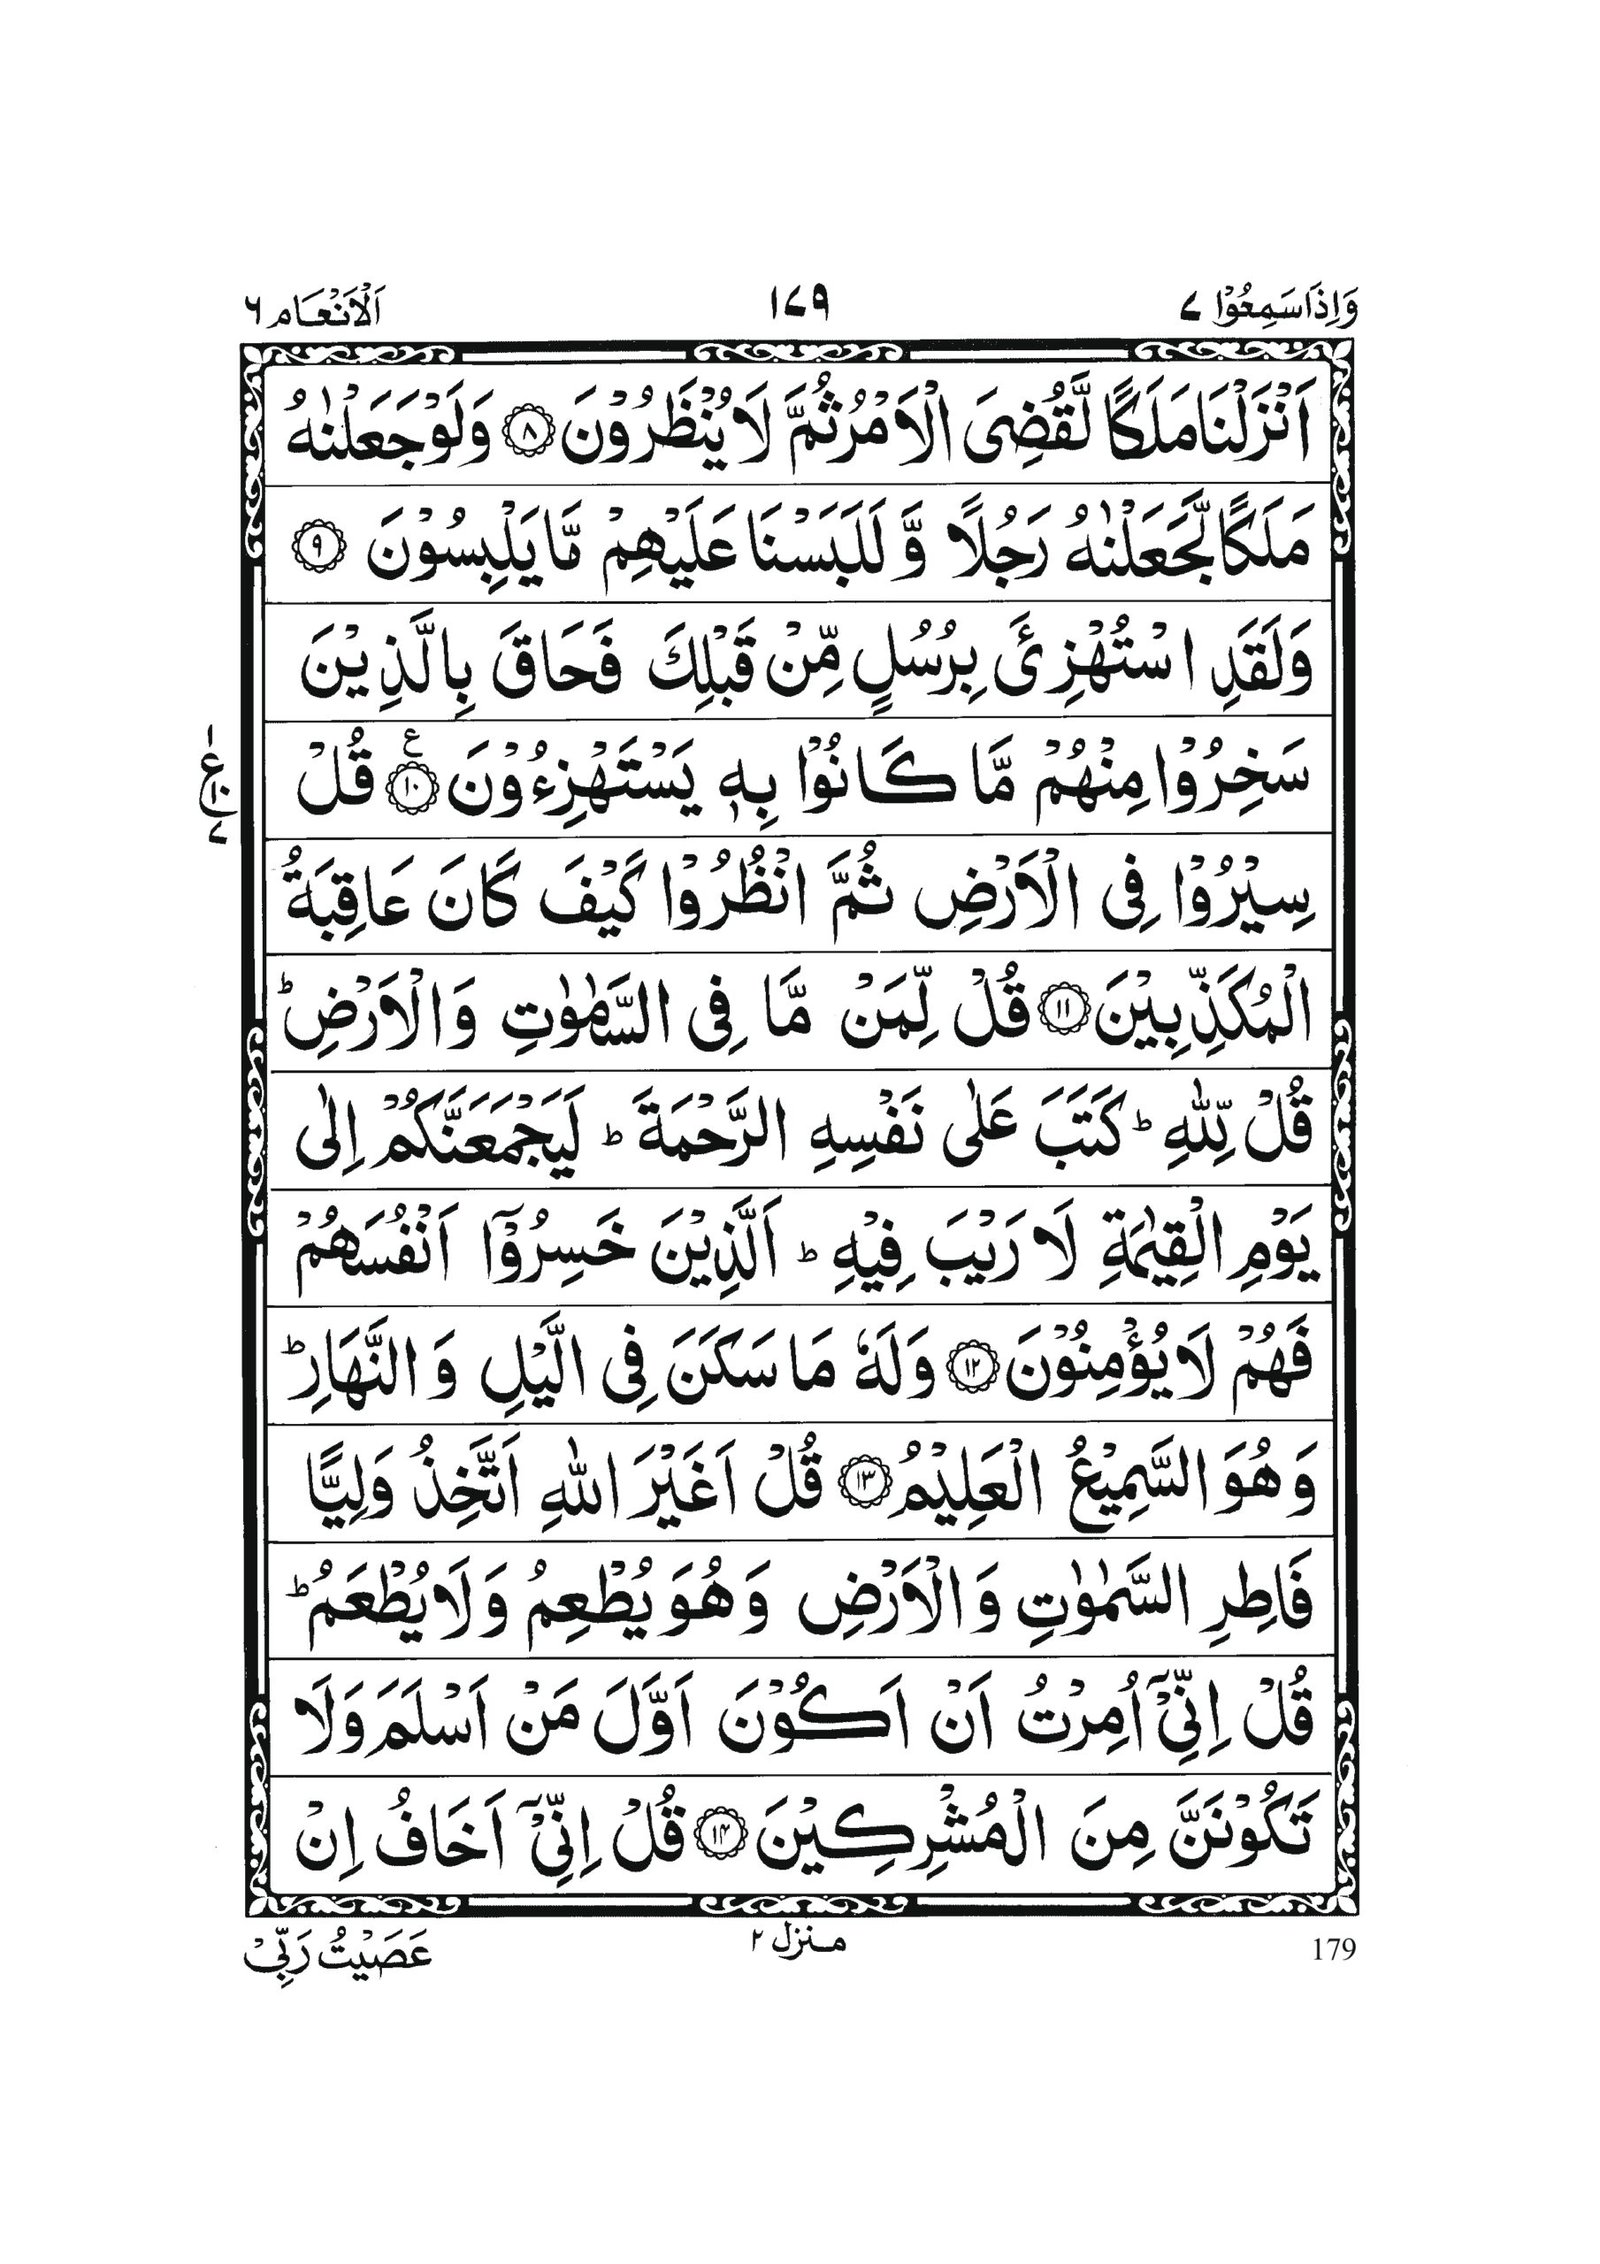 وَاِذَاسَمِعُوْا ٧ ١٧٩ اَلْاَنْعَام ٦
اَنْزَلْنَا مَلَكًا لَّقُضِىَ الْاَمْرُ ثُمَّ لَا يُنْظَرُوْنَ ٨ وَلَوْ جَعَلْنٰهُ
مَلَكًا لَّجَعَلْنٰهُ رَجُلًا وَّ لَلَبَسْنَا عَلَيْهِمْ مَّا يَلْبِسُوْنَ ٩
وَلَقَدِ اسْتُهْزِئَ بِرُسُلٍ مِّنْ قَبْلِكَ فَحَاقَ بِالَّذِيْنَ
سَخِرُوْا مِنْهُمْ مَّا كَانُوْا بِهٖ يَسْتَهْزِءُوْنَ ١٠ ع قُلْ
١ ع ١٠ ٧
سِيْرُوْا فِى الْاَرْضِ ثُمَّ انْظُرُوْا كَيْفَ كَانَ عَاقِبَةُ
الْمُكَذِّبِيْنَ ١١ قُلْ لِّمَنْ مَّا فِى السَّمٰوٰتِ وَالْاَرْضِ ؕ
قُلْ لِّلّٰهِ ؕ كَتَبَ عَلٰى نَفْسِهِ الرَّحْمَةَ ؕ لَيَجْمَعَنَّكُمْ اِلٰى
يَوْمِ الْقِيٰمَةِ لَا رَيْبَ فِيْهِ ؕ اَلَّذِيْنَ خَسِرُوْۤا اَنْفُسَهُمْ
فَهُمْ لَا يُؤْمِنُوْنَ ١٢ وَلَهٗ مَا سَكَنَ فِى الَّيْلِ وَالنَّهَارِ ؕ
وَهُوَ السَّمِيْعُ الْعَلِيْمُ ١٣ قُلْ اَغَيْرَ اللّٰهِ اَتَّخِذُ وَلِيًّا
فَاطِرِ السَّمٰوٰتِ وَالْاَرْضِ وَهُوَ يُطْعِمُ وَلَا يُطْعَمُ ؕ
قُلْ اِنِّىْۤ اُمِرْتُ اَنْ اَكُوْنَ اَوَّلَ مَنْ اَسْلَمَ وَلَا
تَكُوْنَنَّ مِنَ الْمُشْرِكِيْنَ ١٤ قُلْ اِنِّىْۤ اَخَافُ اِنْ
179 منزل ٢ عَصَيْتُ رَبِّىْ